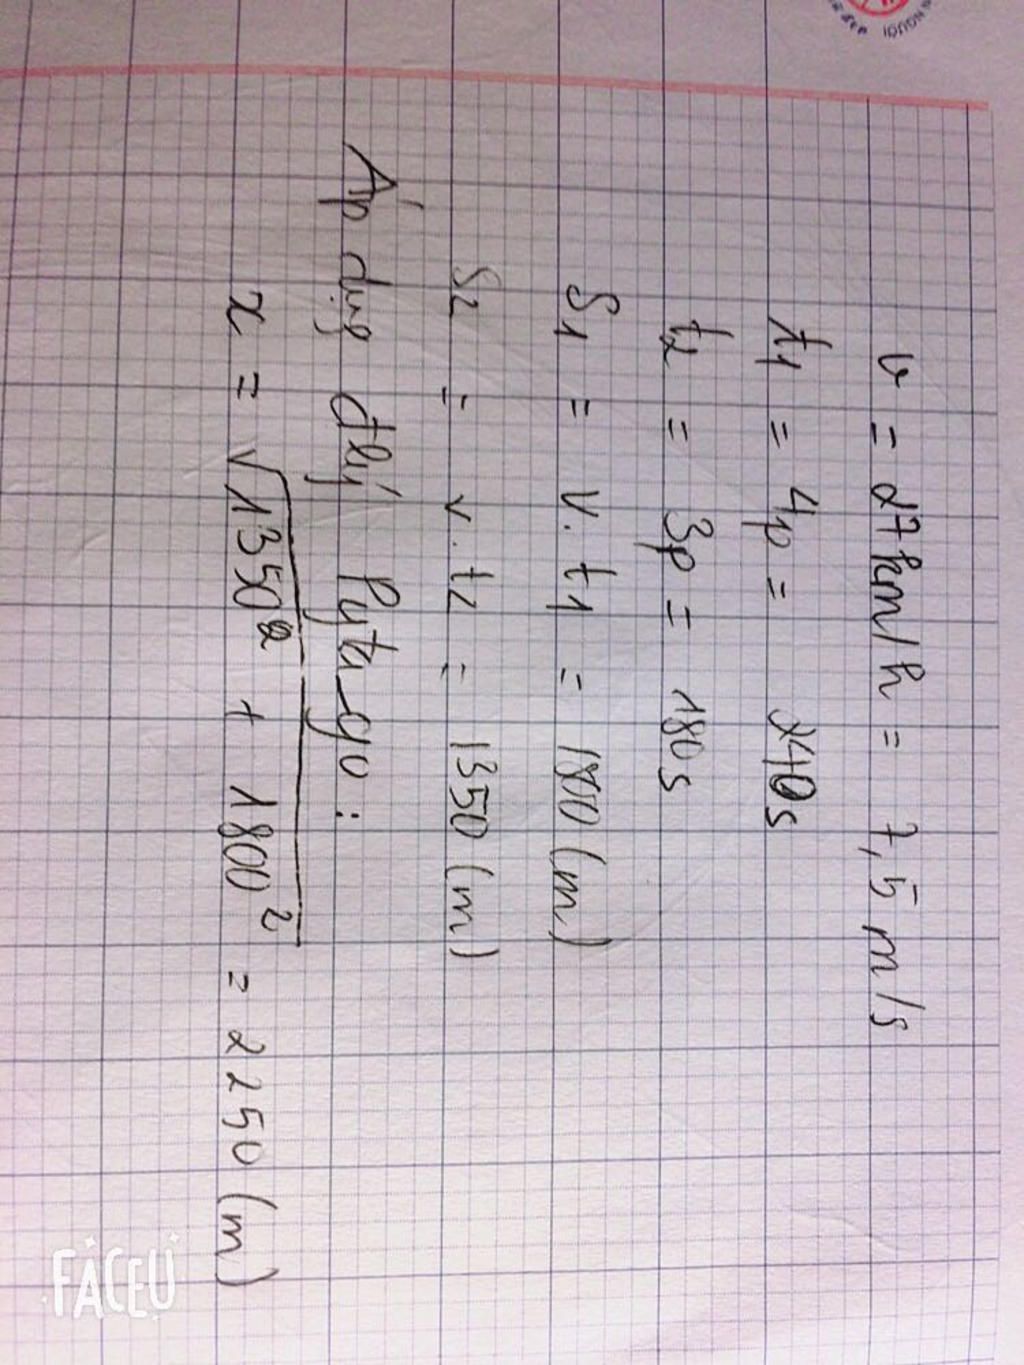 v = 27km/h = 7,5 m/s
t1 = 4p = 240s
t2 = 3p = 180s
S1 = v.t1 = 1800 (m)
S2 = v.t2 = 1350 (m)
Áp dụg đlý Pytago :
x = √1350² + 1800² = 2250 (m)
FACEU
NGƯỜI